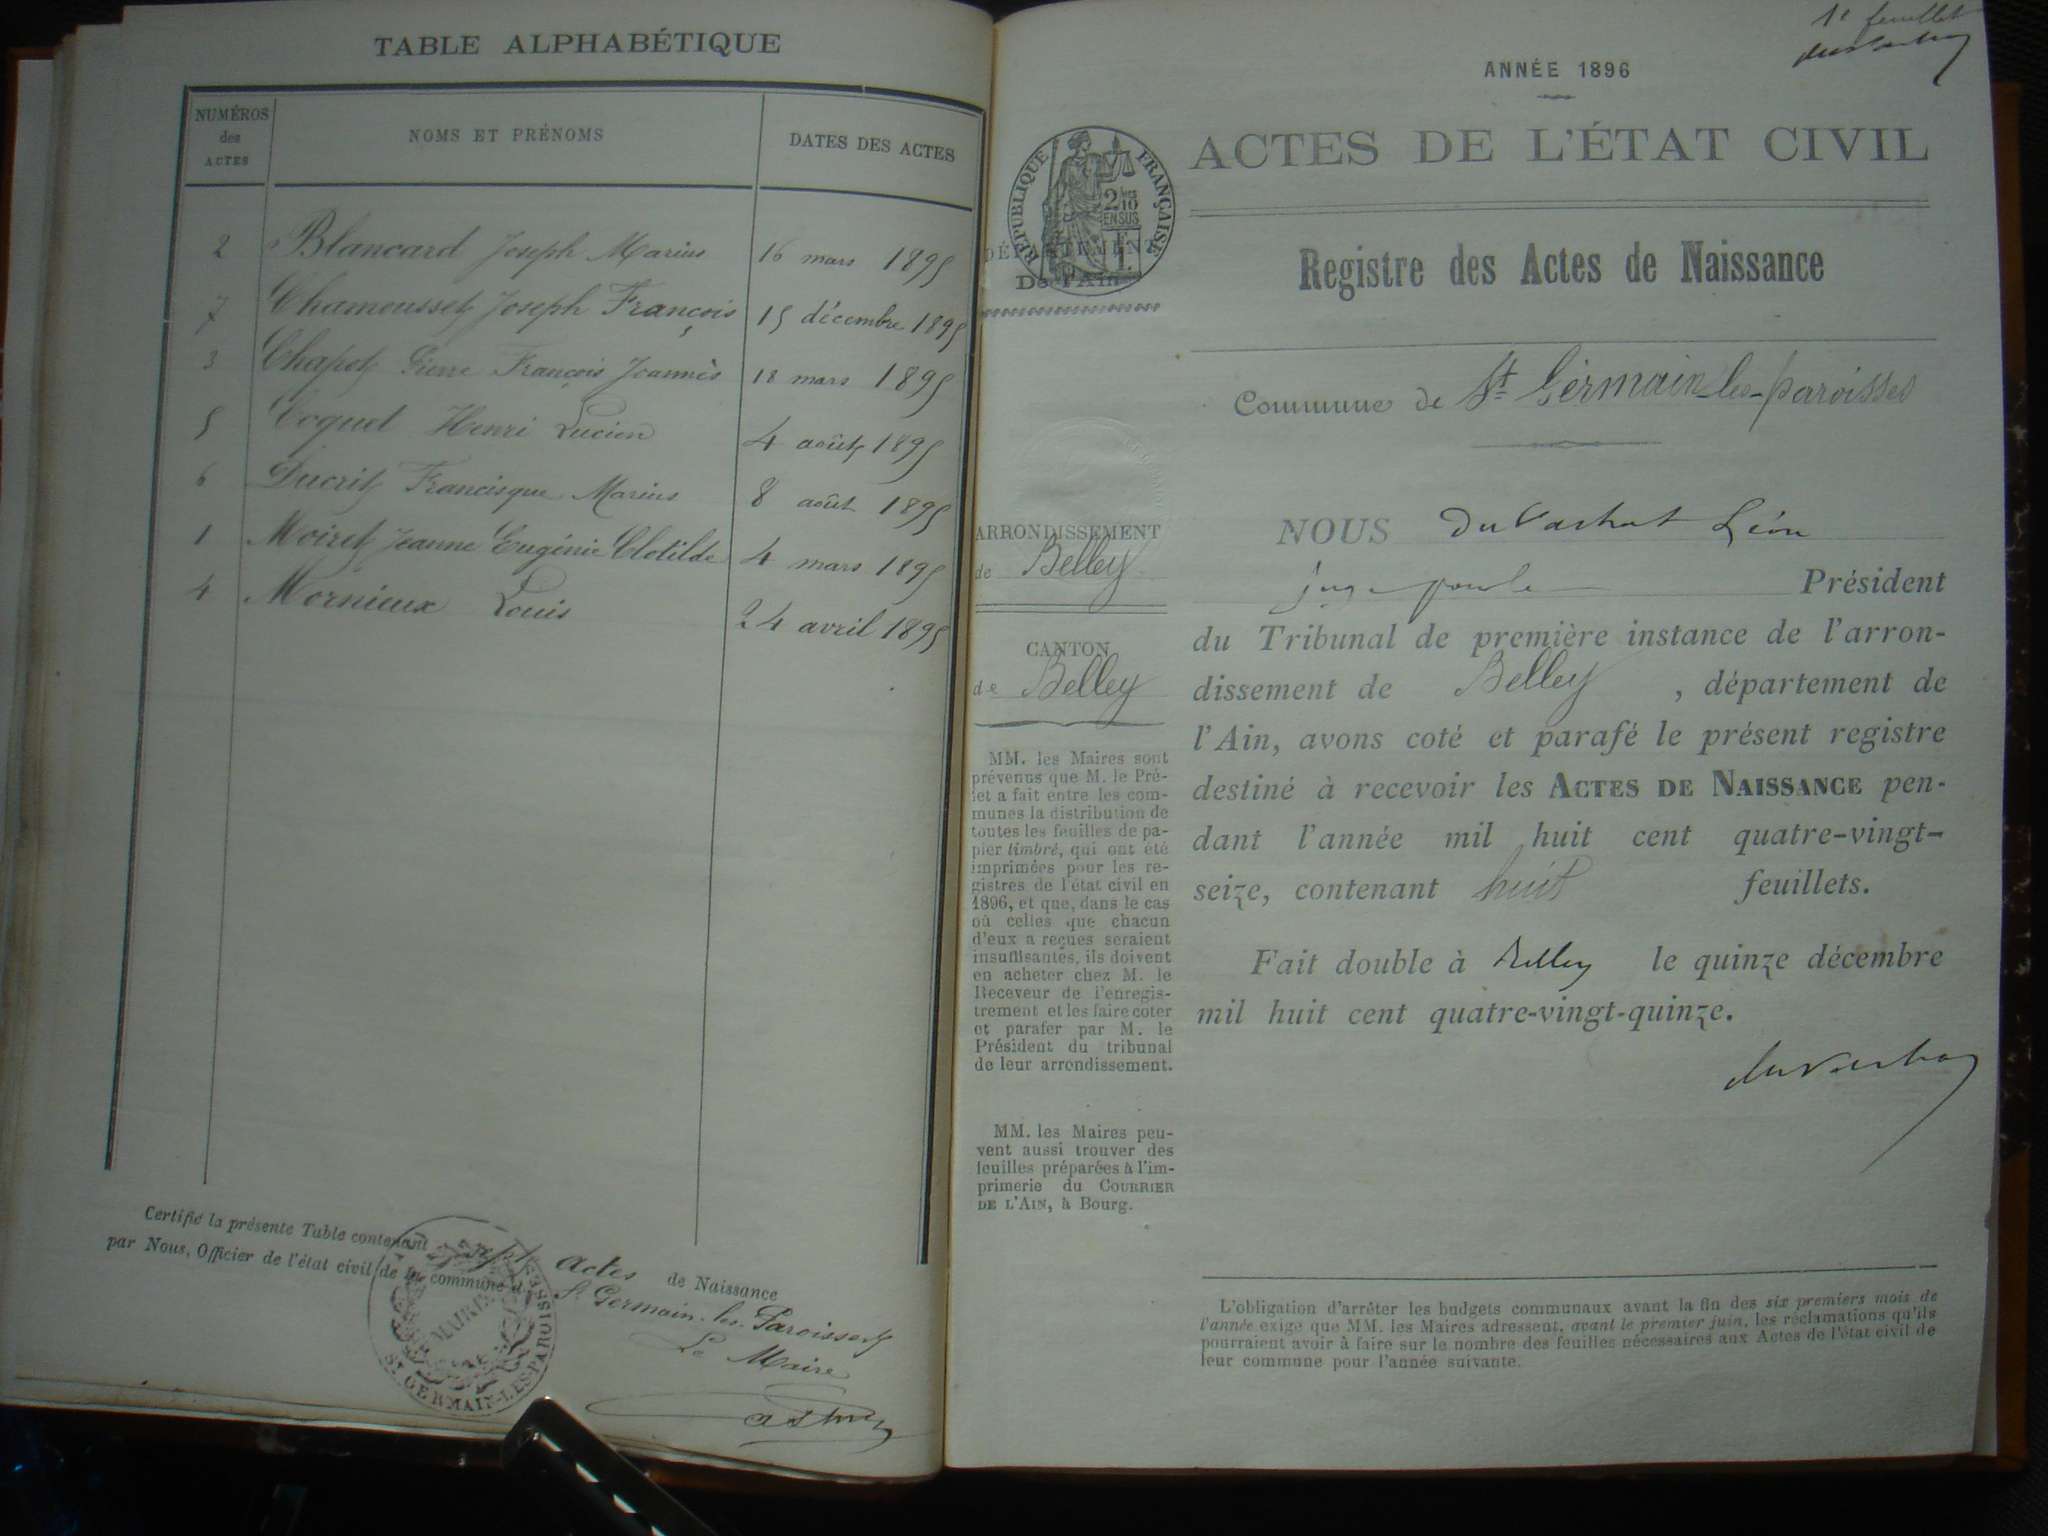 TABLE ALPHABÉTIQUE
NUMÉROS des ACTES | NOMS ET PRÉNOMS | DATES DES ACTES
2 Blancard Joseph Marius 16 mars 1895
7 Chamousset Joseph François 15 décembre 1895
3 Chapot Pierre François Joannès 18 mars 1895
5 Coquet Henri Lucien 4 août 1895
6 Ducrit Francisque Marius 8 août 1895
1 Moiret Jeanne Eugénie Clotilde 4 mars 1895
4 Mornieux Louis 24 avril 1895
Certifié la présente Table contenant sept actes de Naissance
par Nous, Officier de l'état civil de la commune d St Germain-les-Paroisses
Le Maire
MAIRIE
ST GERMAIN-LES-PAROISSES
1er feuillet
ANNÉE 1896
ACTES DE L'ÉTAT CIVIL
RÉPUBLIQUE FRANÇAISE
2/10 EN SUS
DÉPARTEMENT
De l'Ain
Registre des Actes de Naissance
Commune de St Germain-les-paroisses
ARRONDISSEMENT
de Belley
CANTON
de Belley
MM. les Maires sont
prévenus que M. le Pré-
fet a fait entre les com-
munes la distribution de
toutes les feuilles de pa-
pier timbré, qui ont été
imprimées pour les re-
gistres de l'état civil en
1896, et que, dans le cas
où celles que chacun
d'eux a reçues seraient
insuffisantes, ils doivent
en acheter chez M. le
Receveur de l'enregis-
trement et les faire coter
et parafer par M. le
Président du tribunal
de leur arrondissement.
MM. les Maires peu-
vent aussi trouver des
feuilles préparées à l'im-
primerie du COURRIER
DE L'AIN, à Bourg.
NOUS Duvachat Léon
juge pour le Président
du Tribunal de première instance de l'arron-
dissement de Belley, département de
l'Ain, avons coté et parafé le présent registre
destiné à recevoir les ACTES DE NAISSANCE pen-
dant l'année mil huit cent quatre-vingt-
seize, contenant huit feuillets.
Fait double à Belley le quinze décembre
mil huit cent quatre-vingt-quinze.
L'obligation d'arrêter les budgets communaux avant la fin des six premiers mois de
l'année exige que MM. les Maires adressent, avant le premier juin, les réclamations qu'ils
pourraient avoir à faire sur le nombre des feuilles nécessaires aux Actes de l'état civil de
leur commune pour l'année suivante.